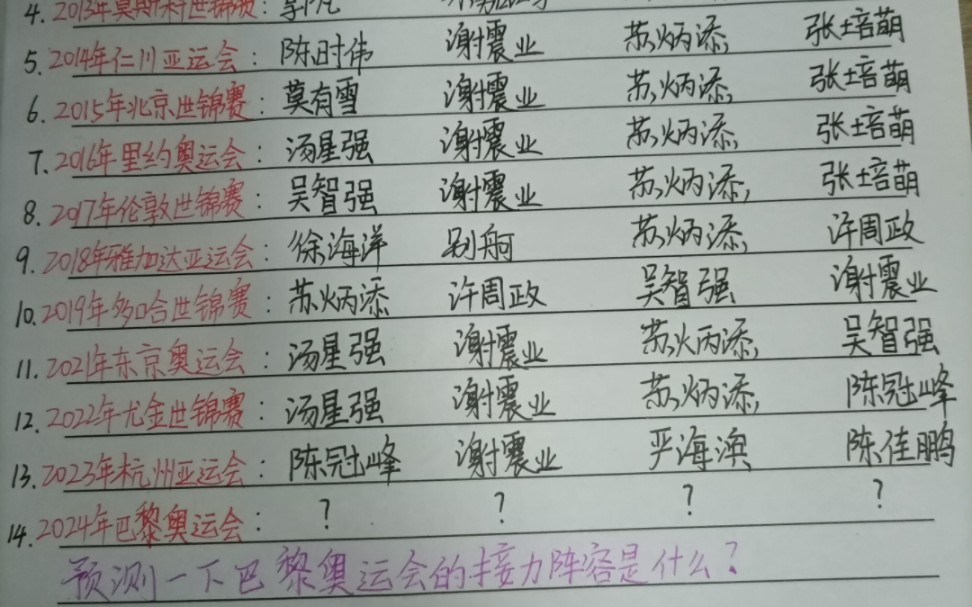 4. 2013年莫斯科世锦赛：
5. 2014年仁川亚运会：陈时伟 谢震业 苏炳添 张培萌
6. 2015年北京世锦赛：莫有雪 谢震业 苏炳添 张培萌
7. 2016年里约奥运会：汤星强 谢震业 苏炳添 张培萌
8. 2017年伦敦世锦赛：吴智强 谢震业 苏炳添 张培萌
9. 2018年雅加达亚运会：徐海洋 别舸 苏炳添 许周政
10. 2019年多哈世锦赛：苏炳添 许周政 吴智强 谢震业
11. 2021年东京奥运会：汤星强 谢震业 苏炳添 吴智强
12. 2022年尤金世锦赛：汤星强 谢震业 苏炳添 陈冠峰
13. 2023年杭州亚运会：陈冠峰 谢震业 严海滨 陈佳鹏
14. 2024年巴黎奥运会：？ ？ ？ ？
预测一下巴黎奥运会的接力阵容是什么？